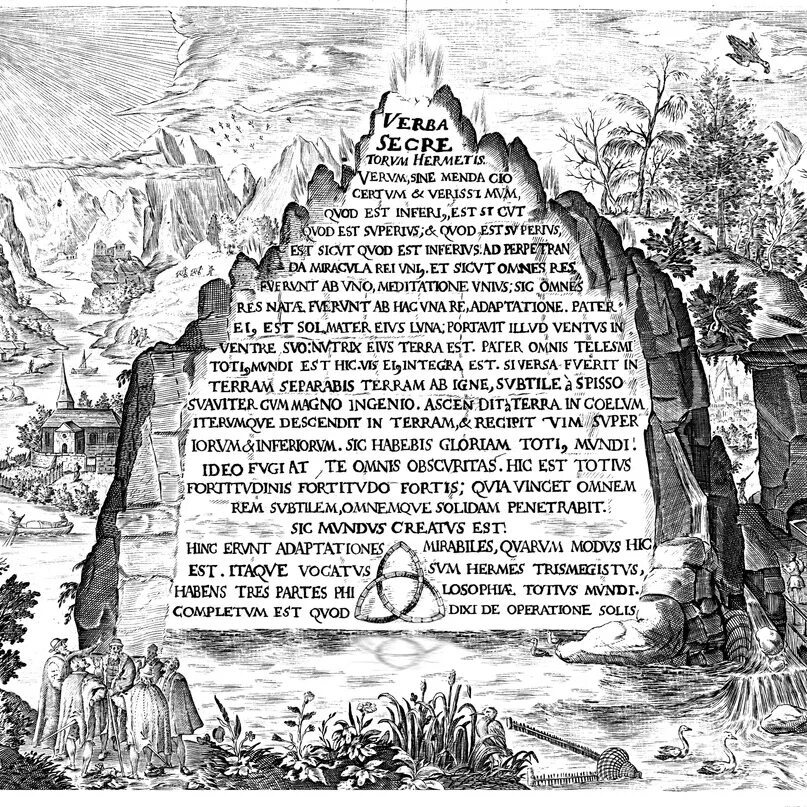 VERBA
SECRE
TORVM HERMETIS.
VERVM, SINE MENDACIO
CERTVM & VERISSIMVM,
QVOD EST INFERI,, EST SICVT
QVOD EST SVPERIVS; & QVOD EST SVPERIVS,
EST SICVT QVOD EST INFERIVS. AD PERPETRAN
DA MIRACVLA REI VNI,. ET SICVT OMNES RES
FVERVNT AB VNO, MEDITATIONE VNIVS; SIC OMNES
RES NATÆ FVERVNT AB HAC VNA RE, ADAPTATIONE. PATER
EI, EST SOL, MATER EIVS LVNA; PORTAVIT ILLVD VENTVS IN
VENTRE SVO: NVTRIX EIVS TERRA EST. PATER OMNIS TELESMI
TOTI, MVNDI EST HIC. VIS EI, INTEGRA EST. SI VERSA FVERIT IN
TERRAM SEPARABIS TERRAM AB IGNE, SVBTILE à SPISSO
SVAVITER CVM MAGNO INGENIO. ASCENDIT à TERRA IN COELVM
ITERVMQVE DESCENDIT IN TERRAM, & RECIPIT VIM SVPER
IORVM & INFERIORVM. SIC HABEBIS GLORIAM TOTI, MVNDI.
IDEO FVGIAT TE OMNIS OBSCVRITAS. HIC EST TOTIVS
FORTITVDINIS FORTITVDO FORTIS; QVIA VINCET OMNEM
REM SVBTILEM, OMNEMQVE SOLIDAM PENETRABIT.
SIC MVNDVS CREATVS EST.
HINC ERVNT ADAPTATIONES MIRABILES, QVARVM MODVS HIC
EST. ITAQVE VOCATVS SVM HERMES TRISMEGISTVS,
HABENS TRES PARTES PHI LOSOPHIÆ TOTIVS MVNDI.
COMPLETVM EST QVOD DIXI DE OPERATIONE SOLIS